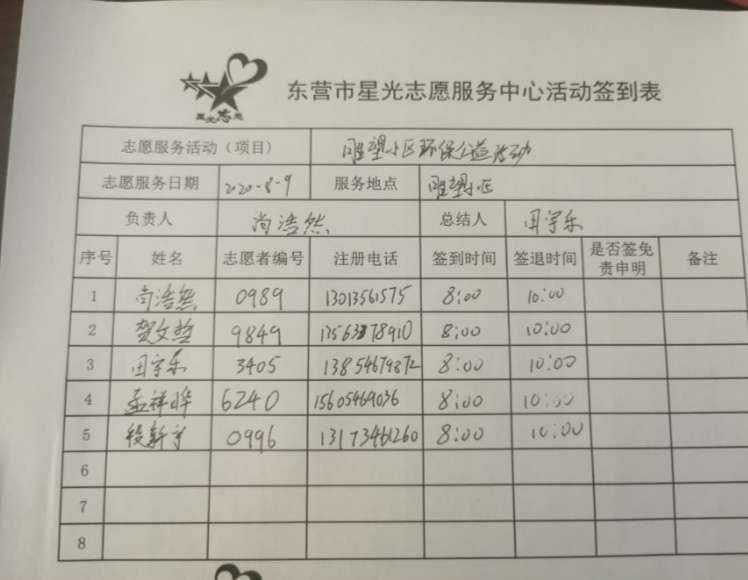 星光志愿
东营市星光志愿服务中心活动签到表
志愿服务活动（项目） 胜望小区环保公益活动
志愿服务日期 2020-8-9 服务地点 胜望小区
负责人 尚浩然 总结人 田宇乐
序号 姓名 志愿者编号 注册电话 签到时间 签退时间 是否签免责申明 备注
1 尚浩然 0989 13013561575 8:00 10:00
2 贺文哲 9849 13563378910 8:00 10:00
3 田宇乐 3405 13854679872 8:00 10:00
4 孟祥晔 6240 15605469036 8:00 10:00
5 0996 13173461260 8:00 10:00
6
7
8